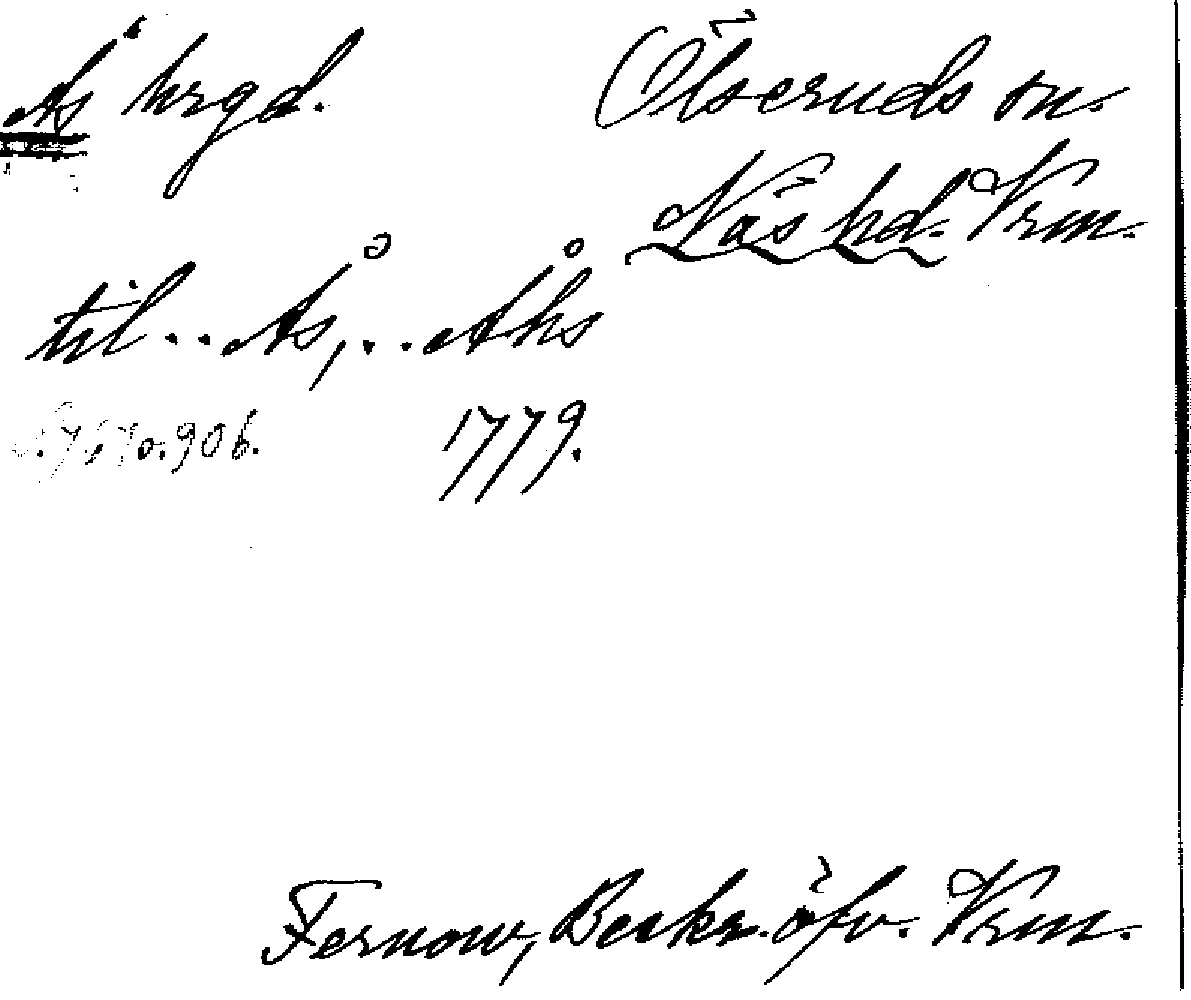 Ås hrgd. Ölseruds sn.
Näs hd. Vrm.
til .. Ås, .. Åhs
1779.
Fernow, Beskr. öfv. Vrm.